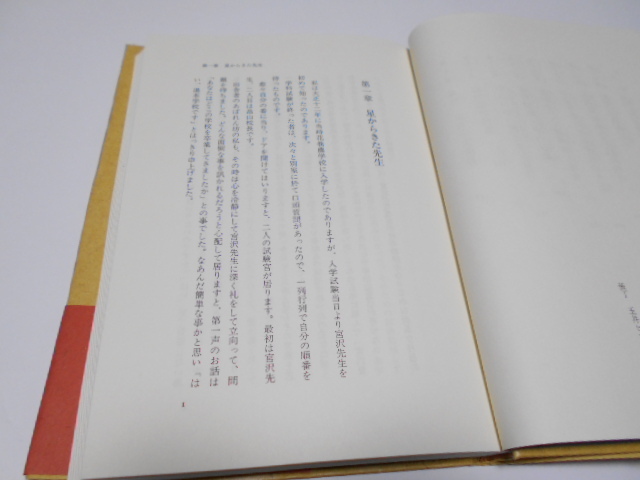 第一章 星からきた先生
第一章 星からきた先生
私は大正十二年に当時花巻農学校に入学したのでありますが、入学試験当日より宮沢先生を
初めて知ったのであります。
学科試験が終った者は、次々と別室に於て口頭試問があったので、一列行列で自分の順番を
待ったものです。
扨て自分の番になり、ドアを開けてはいりますと、二人の試験官が居ります。最初は宮沢先
生、二人目は畠山校長です。
田舎者のあばれん坊の私も、その時は心を冷静にして宮沢先生に深く礼をして立向って、問
題を待ちました。どんな面倒な事を訊かれるだろうと心配して居りますと、第一声のお話は
「あなたはどこの学校を卒業してきましたか」との事でした。なあんだ簡単な事かと思い「は
い、湯本学校です」とはっきり申上げました。
1